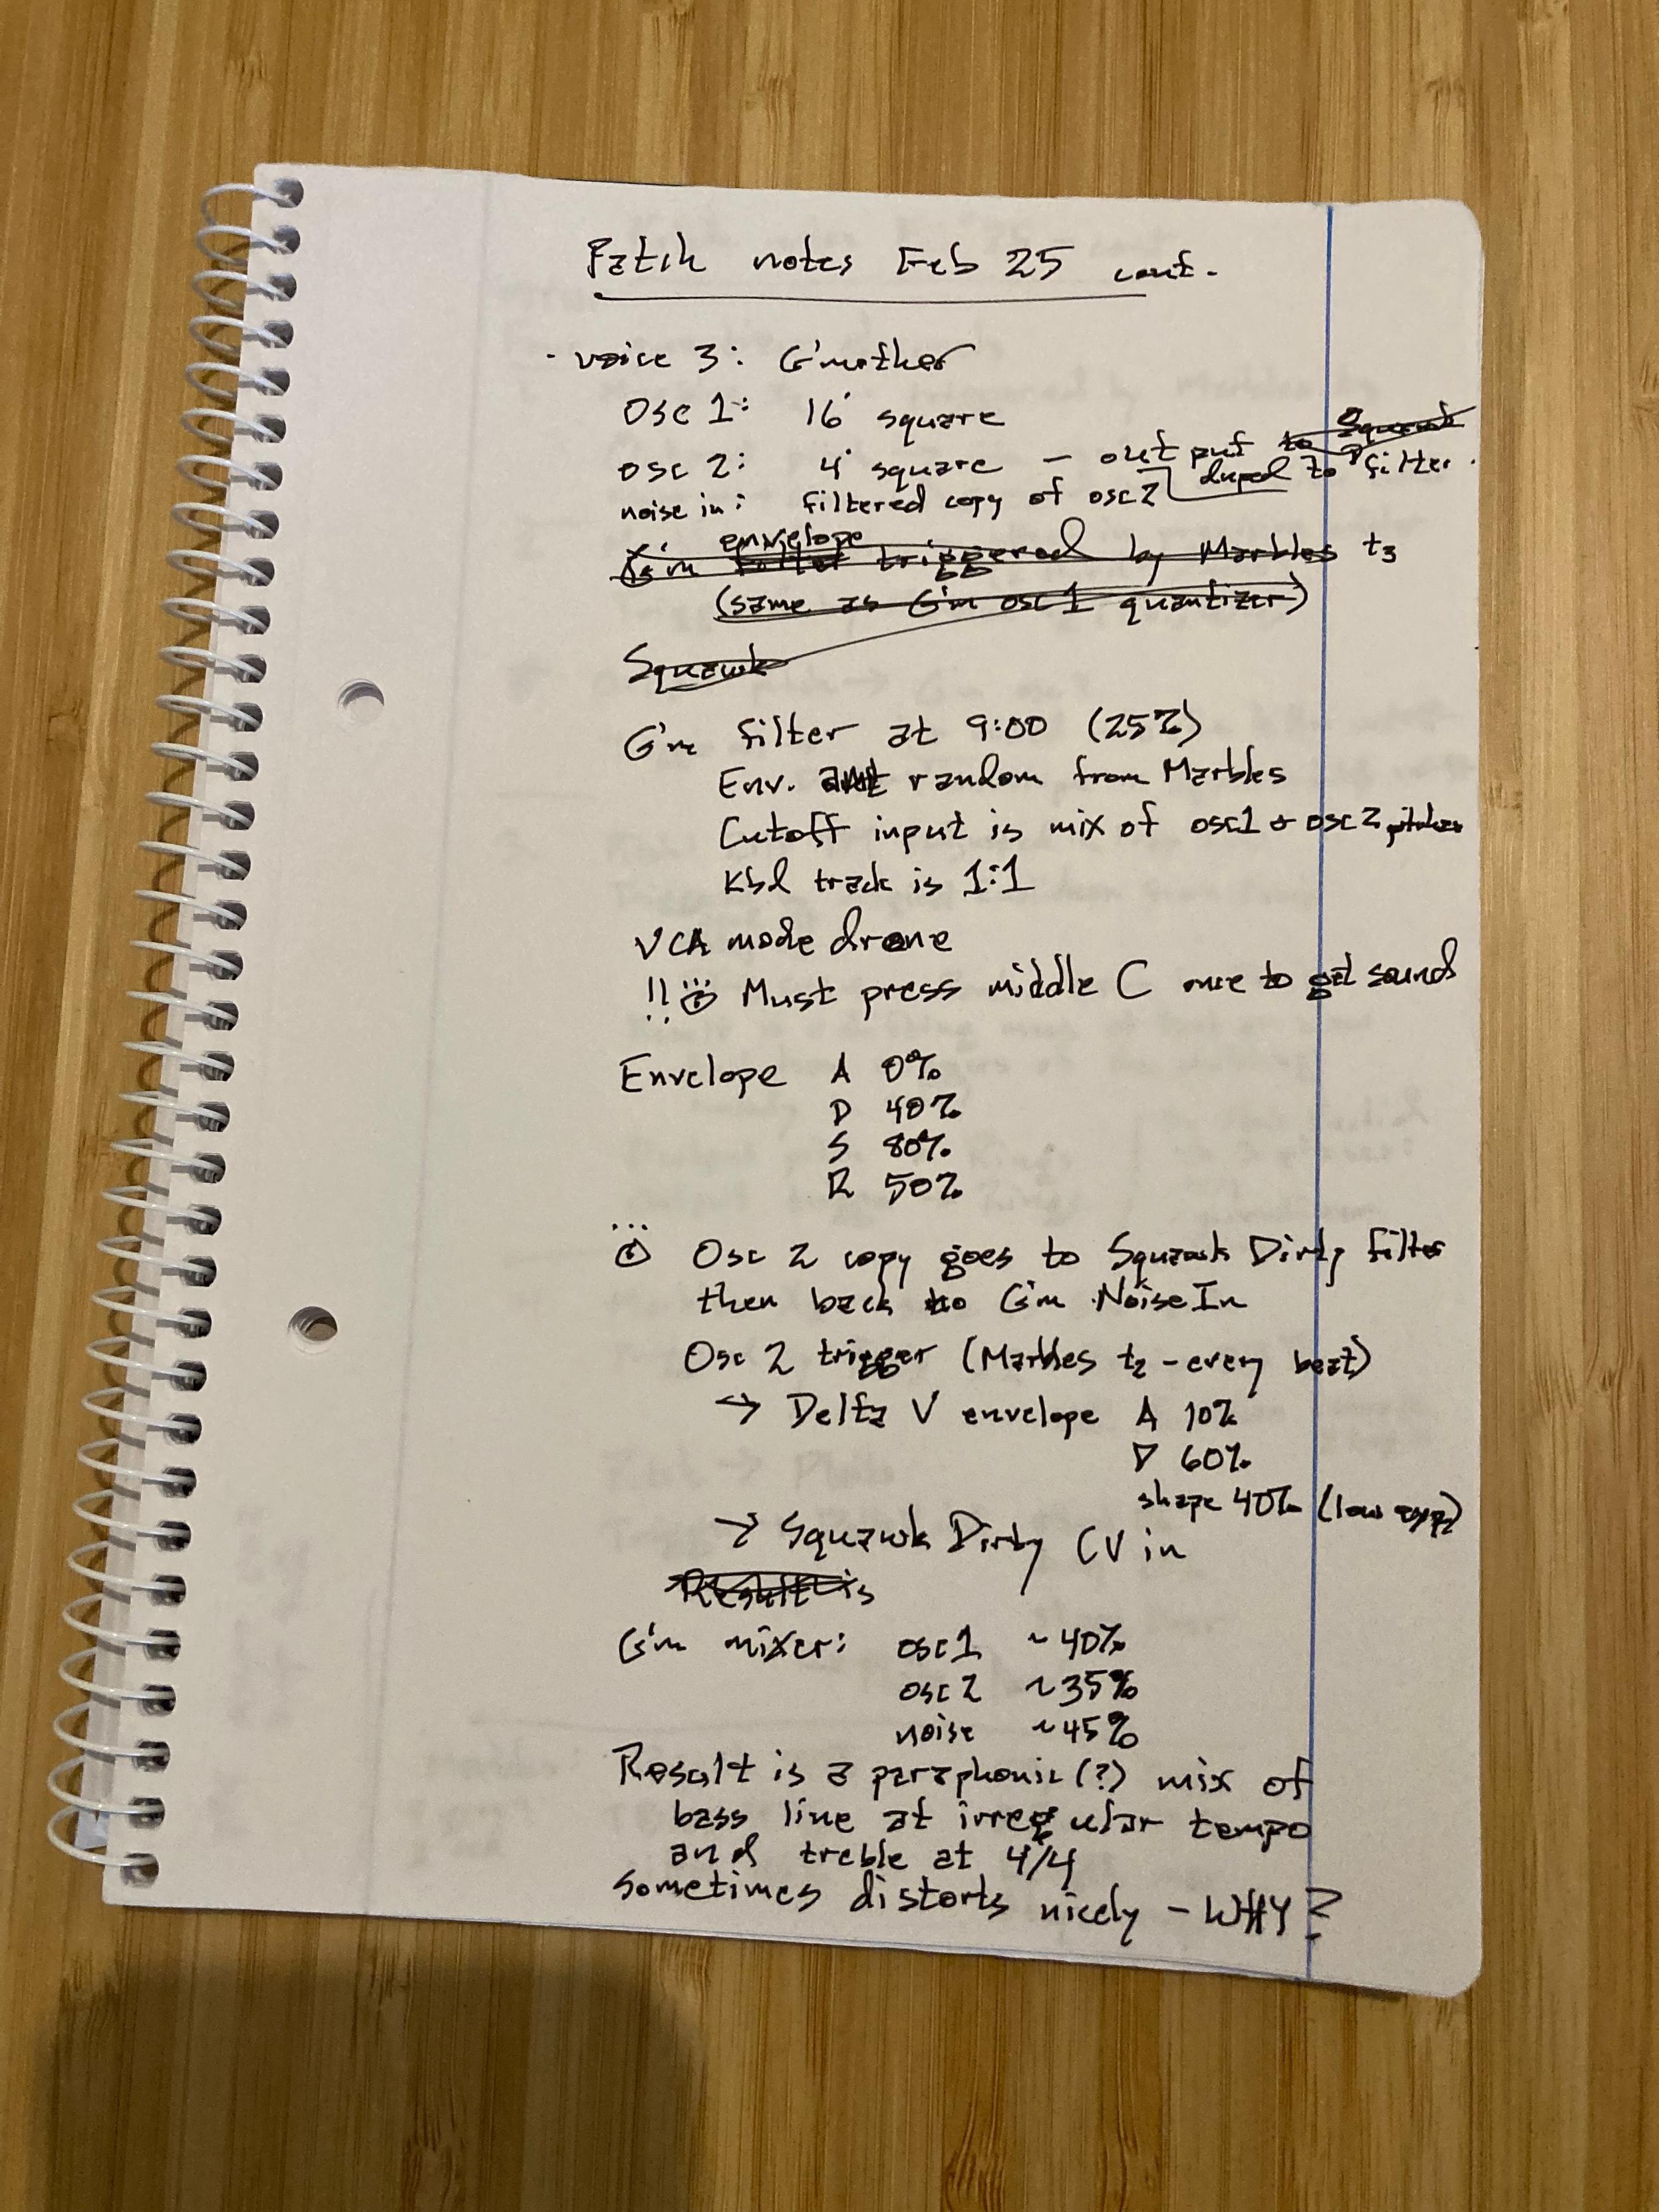 Patch notes Feb 25 cont.
- voice 3: G'mother
Osc 1: 16' square
osc 2: 4' square — output to Squawk duped to filter.
noise in: filtered copy of osc 2
G'm filter envelope triggered by Marbles t3
(same as G'm osc 1 quantizer)
Squawk
G'm filter at 9:00 (25%)
Env. random from Marbles
Cutoff input is mix of osc1 + osc2 pitches
Kbd track is 1:1
VCA mode drone
!! Must press middle C once to get sound
Envelope A 0%
D 40%
S 80%
R 50%
Osc 2 copy goes to Squawk Dirty filter
then back to G'm Noise In
Osc 2 trigger (Marbles t2 - every beat)
→ Delta V envelope A 10%
D 60%
shape 40% (low exp)
→ Squawk Dirty CV in
Result is
G'm mixer: osc1 ~40%
osc 2 ~35%
noise ~45%
Result is a paraphonic(?) mix of
bass line at irregular tempo
and treble at 4/4
Sometimes distorts nicely - WHY?